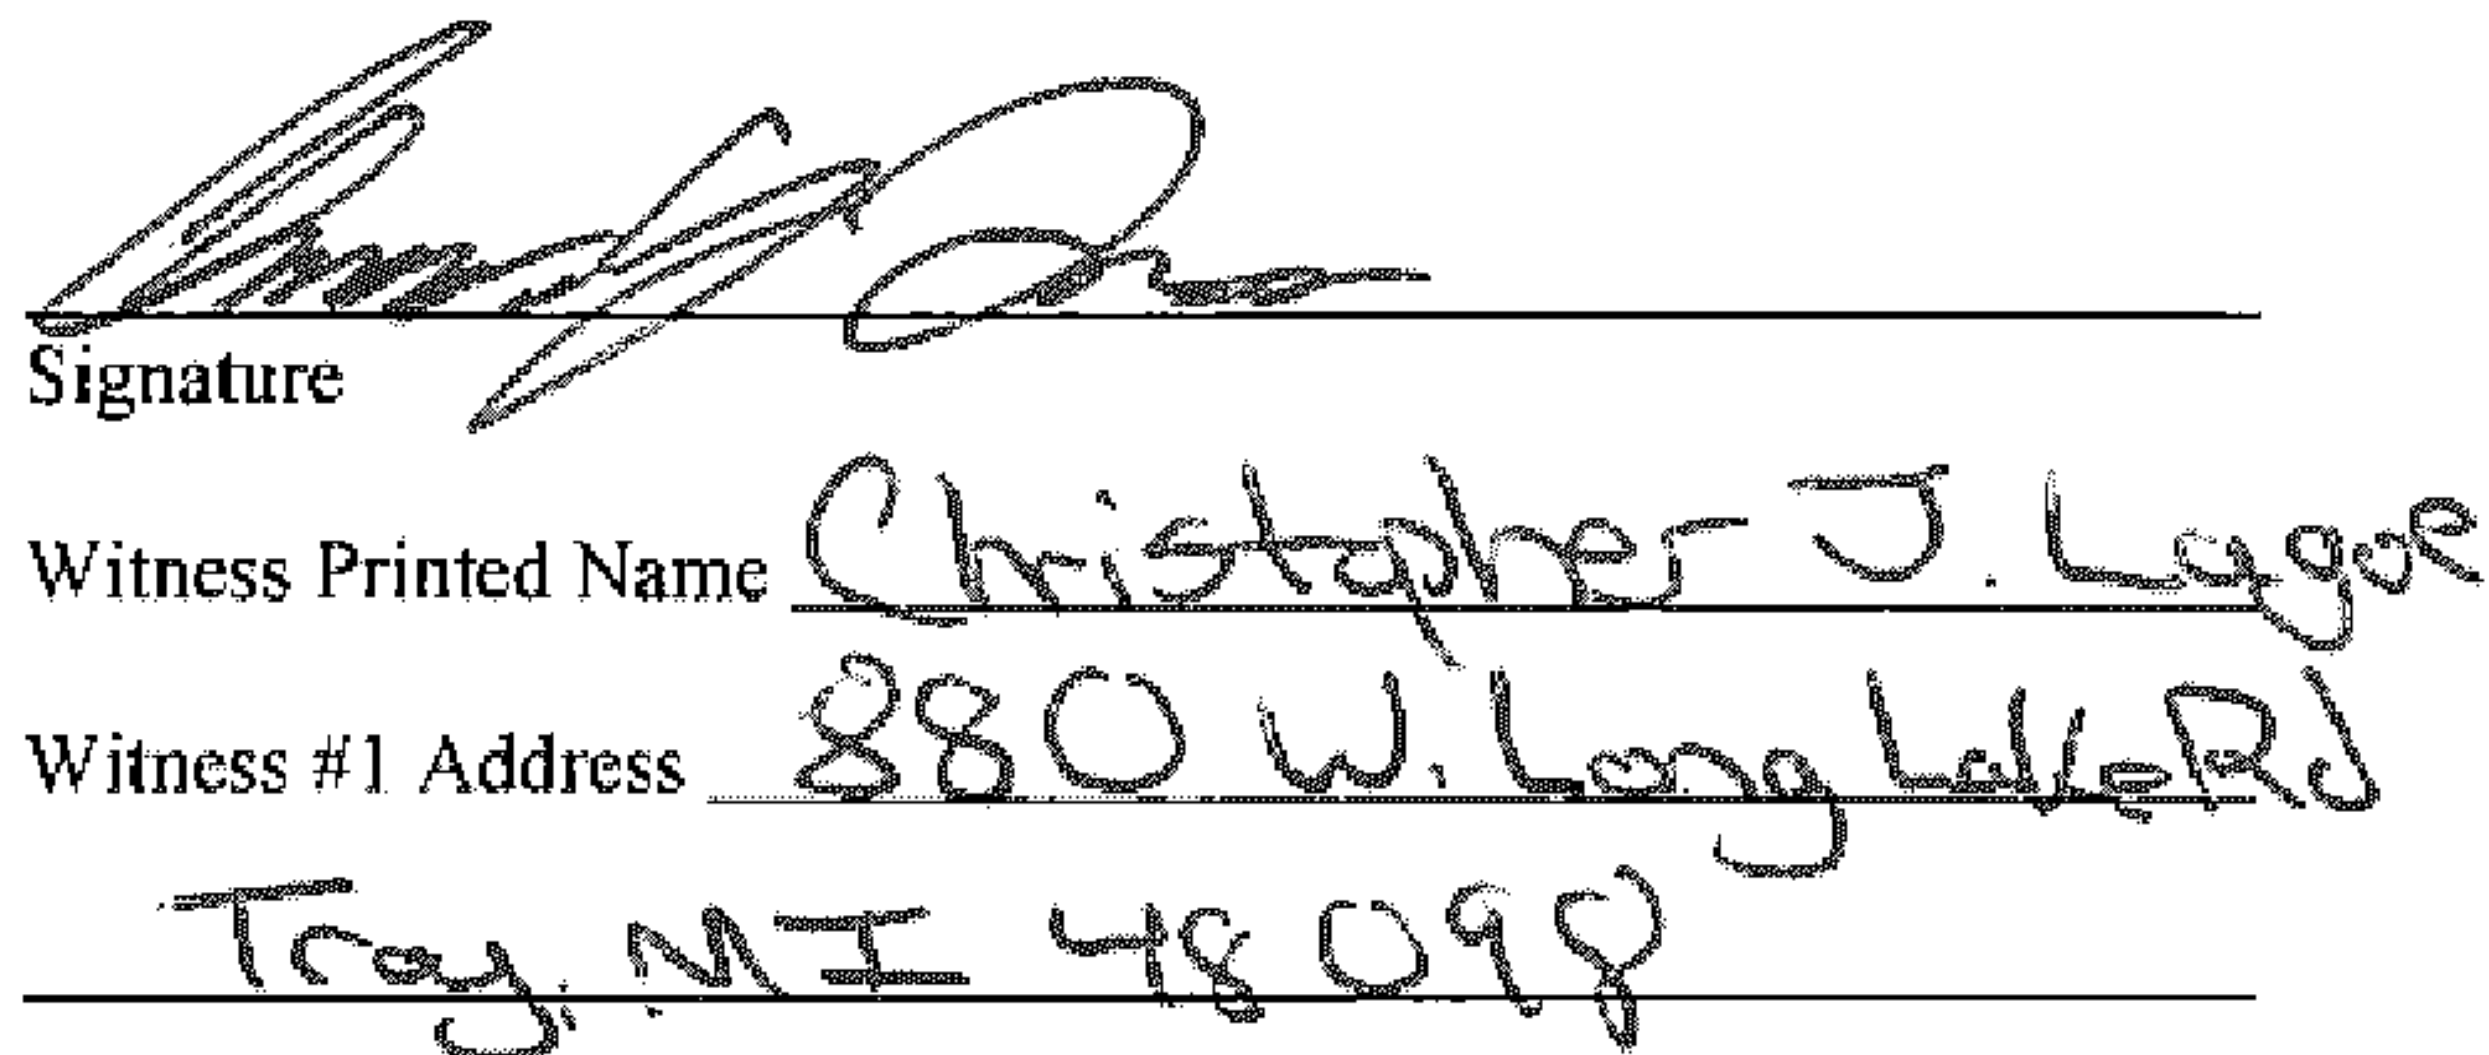 Signature
Witness Printed Name Christopher J. Lagoe
Witness #1 Address 880 W. Long Lake Rd
Troy, MI 48098